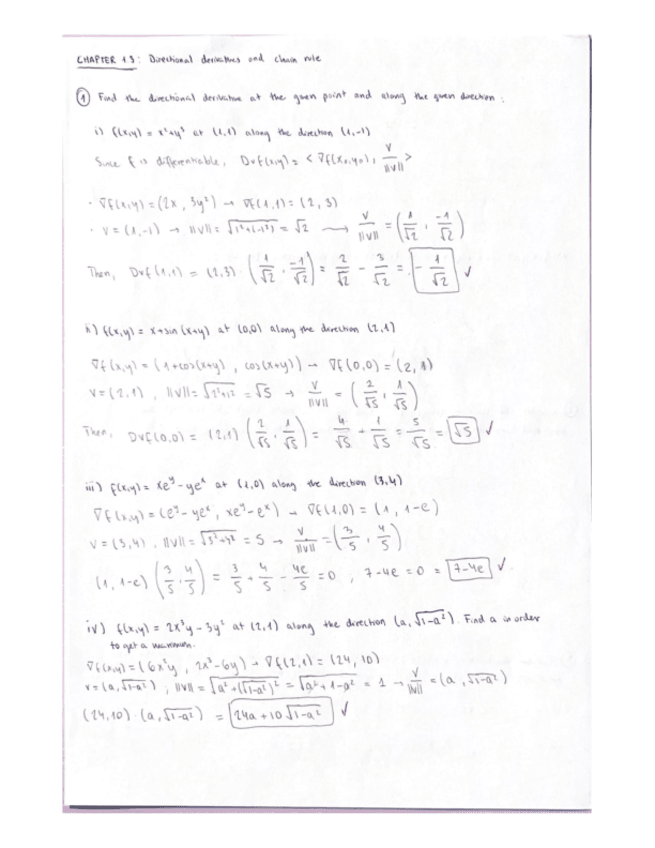 CHAPTER 1.3: Directional derivatives and chain rule
① Find the directional derivative at the given point and along the given direction:
i) f(x,y) = x²+y³ at (1,1) along the direction (1,-1)
Since f is differentiable, Dvf(x,y) = < ∇f(x₀,y₀), v/||v|| >
· ∇f(x,y) = (2x, 3y²) → ∇f(1,1) = (2, 3)
· v = (1,-1) → ||v|| = √(1²+(-1)²) = √2 → v/||v|| = (1/√2, -1/√2)
Then, Dvf(1,1) = (2,3) · (1/√2, -1/√2) = 2/√2 - 3/√2 = -1/√2 ✓
ii) f(x,y) = x+sin(x+y) at (0,0) along the direction (2,1)
∇f(x,y) = (1+cos(x+y), cos(x+y)) → ∇f(0,0) = (2, 1)
v = (2,1), ||v|| = √(2²+1²) = √5 → v/||v|| = (2/√5, 1/√5)
Then, Dvf(0,0) = (2,1) (2/√5, 1/√5) = 4/√5 + 1/√5 = 5/√5 = √5 ✓
iii) f(x,y) = xe^y - ye^x at (1,0) along the direction (3,4)
∇f(x,y) = (e^y - ye^x, xe^y - e^x) → ∇f(1,0) = (1, 1-e)
v = (3,4), ||v|| = √(3²+4²) = 5 → v/||v|| = (3/5, 4/5)
(1, 1-e) (3/5, 4/5) = 3/5 + 4/5 - 4e/5 = 0, 7-4e = 0 = 7-4e ✓
iv) f(x,y) = 2x³y - 3y² at (2,1) along the direction (a, √(1-a²)). Find a in order
to get a maximum.
∇f(x,y) = (6x²y, 2x³-6y) → ∇f(2,1) = (24, 10)
v = (a, √(1-a²)), ||v|| = √(a²+(√(1-a²))²) = √(a²+1-a²) = 1 → v/||v|| = (a, √(1-a²))
(24,10) · (a, √(1-a²)) = 24a + 10√(1-a²) ✓